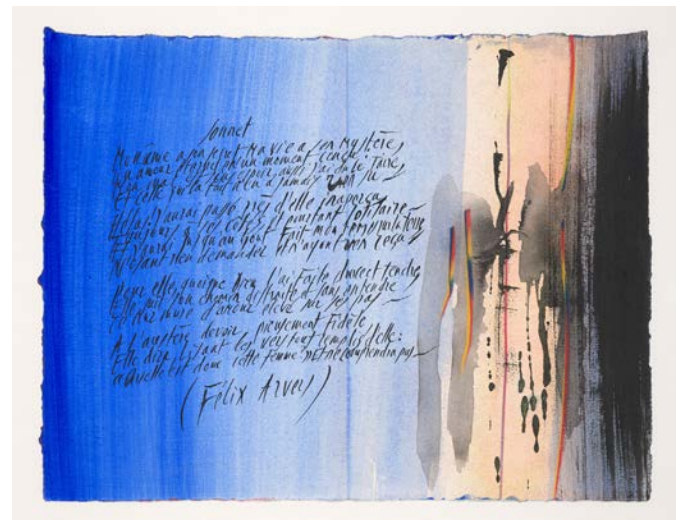 Sonnet
Mon âme a son secret ma vie a son mystère
Un amour éternel en un moment conçu :
sans espoir, aussi j'ai dû le taire
Et celle qui l'a fait n'en a jamais rien su
Hélas ! j'aurai passé près d'elle inaperçu
Toujours à ses côtés et pourtant solitaire
Et j'aurai jusqu'au bout fait mon temps sur la terre
N'osant rien demander et n'ayant rien reçu
Pour elle, quoique Dieu l'ait faite douce et tendre
Elle suit son chemin distraite et sans entendre
Ce murmure d'amour élevé sur ses pas
A l'austère devoir pieusement fidèle
Elle dira lisant ces vers tout remplis d'elle :
Quelle est donc cette femme et ne comprendra pas
(Félix Arvers)